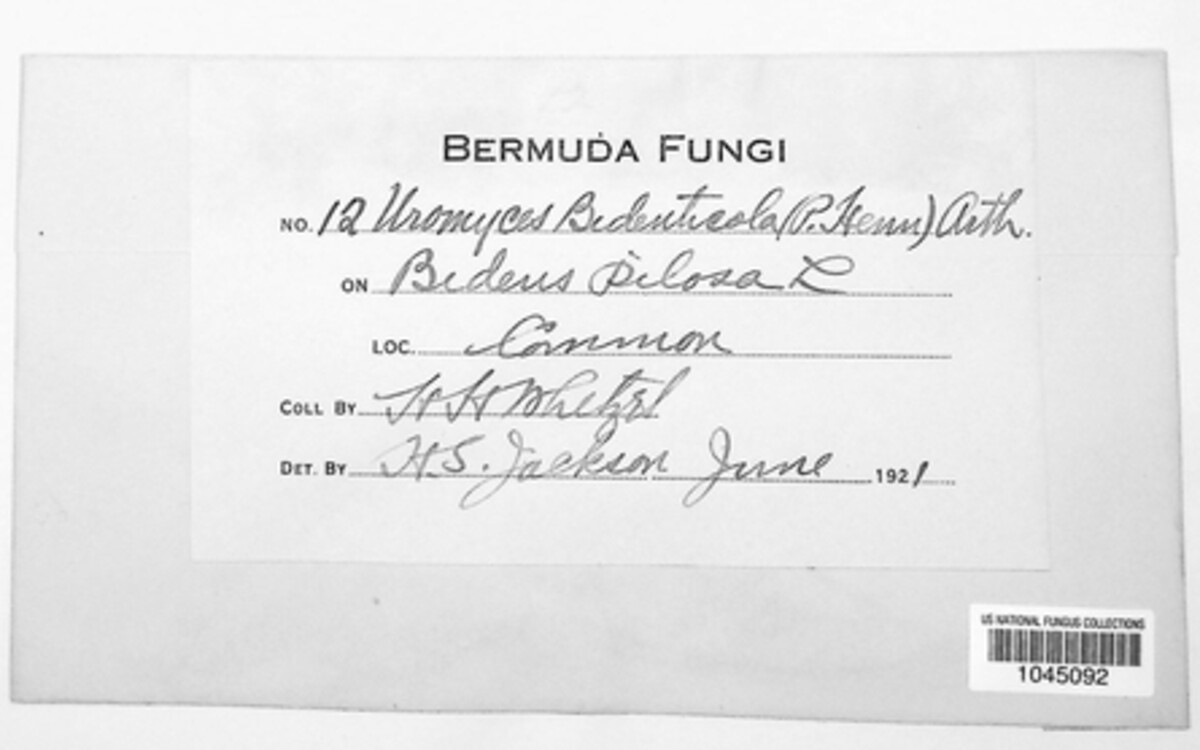 BERMUDA FUNGI
NO. 12 Uromyces Bidenticola (P. Henn) Arth.
ON Bidens pilosa L
LOC. Common
COLL BY H H Whetzel
DET. BY H.S. Jackson June 1921
US NATIONAL FUNGUS COLLECTIONS
1045092